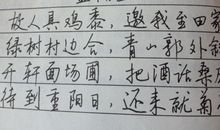 故人具鸡黍，邀我至田家
绿树村边合，青山郭外斜
开轩面场圃，把酒话桑麻
待到重阳日，还来就菊